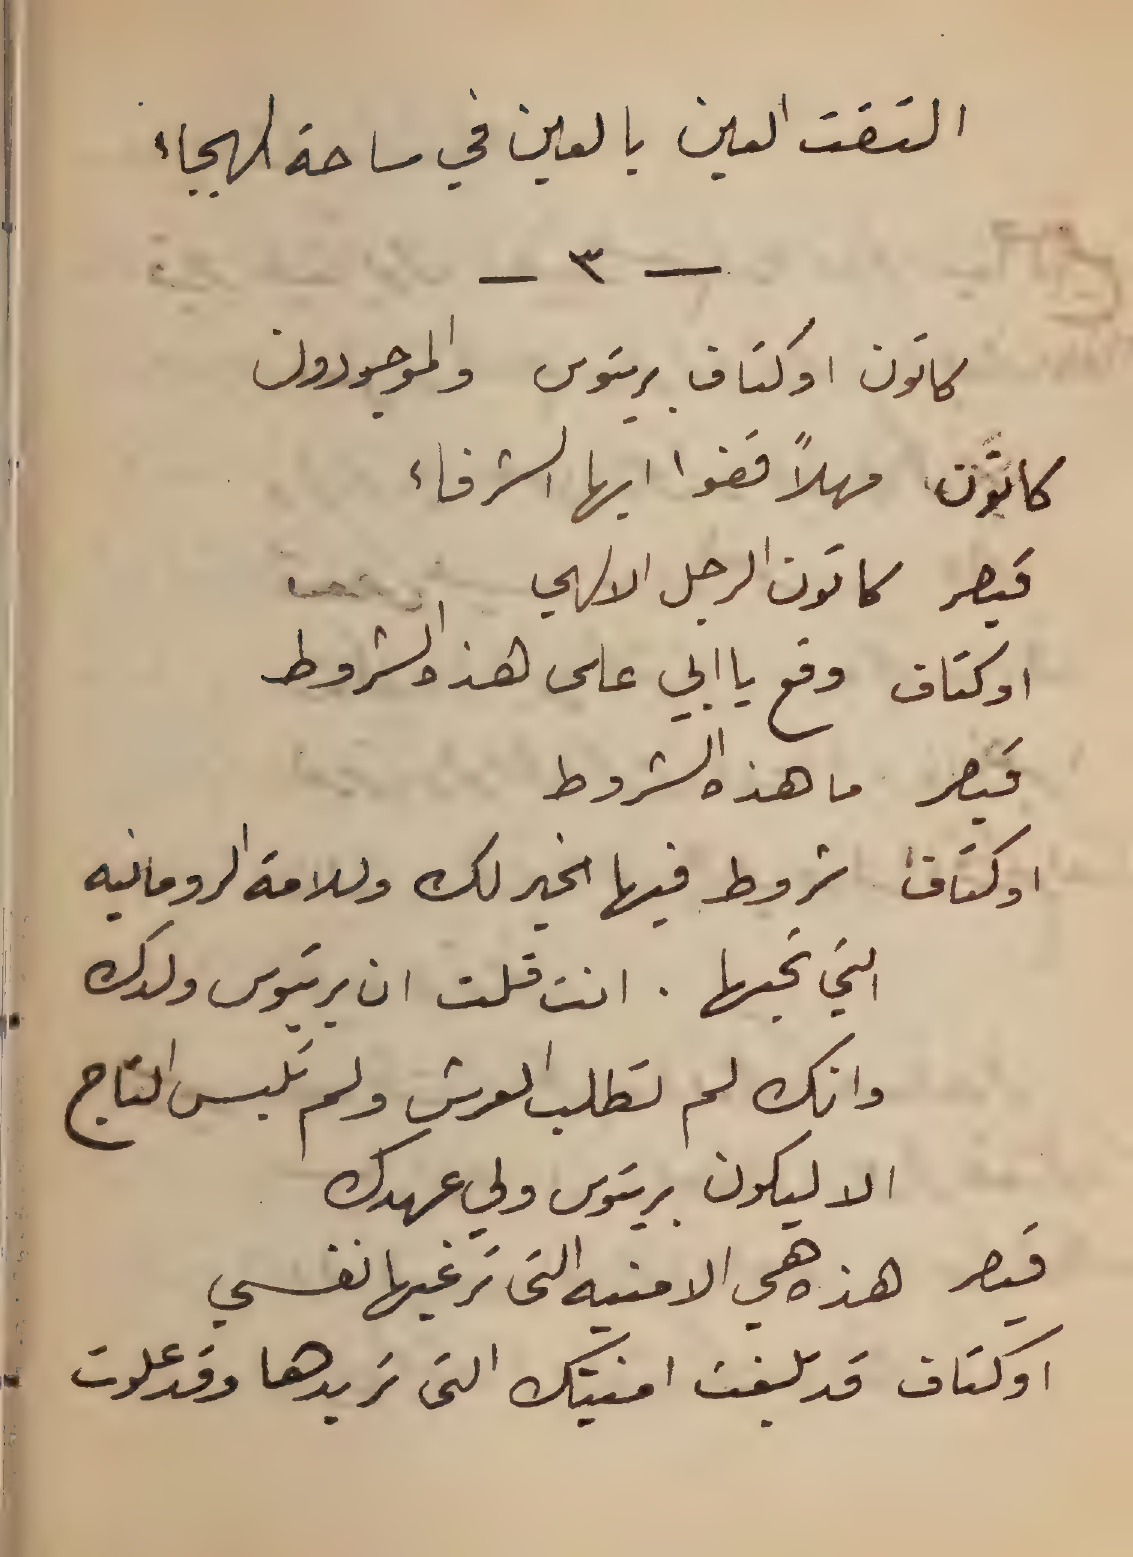 التقت العين بالعين في ساحة الهيجاء
— ٣ —
كاتون اوكتاف بريتوس والموجودون
كاتون مهلاً قفوا ايها الشرفاء
قيصر كاتون الرجل الالهي
اوكتاف وقع يا ابي على هذه الشروط
قيصر ما هذه الشروط
اوكتاف شروط فيها الخير لك وللامة الرومانيه
التي تحبها . انت قلت ان بريتوس ولدك
وانك لم تطلب العرش ولم تلبس التاج
الا ليكون بريتوس ولي عهدك
قيصر هذه هي الامنيه التي ترغبها نفسي
اوكتاف قد بلغت امنيتك التي تريدها وقد علوت